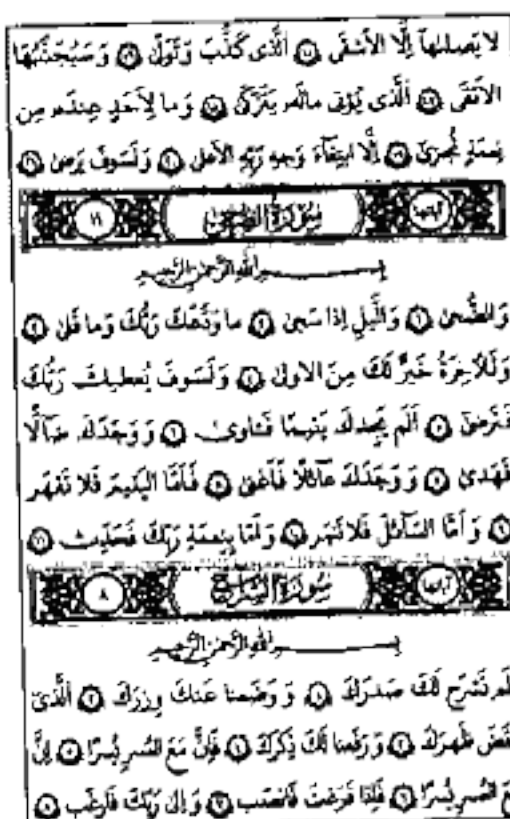 لا يَصلىٰها إِلَّا الأَشقَى ﴿١٥﴾ الَّذى كَذَّبَ وَتَوَلّىٰ ﴿١٦﴾ وَسَيُجَنَّبُهَا
الأَتقَى ﴿١٧﴾ الَّذى يُؤتى مالَهُ يَتَزَكّىٰ ﴿١٨﴾ وَما لِأَحَدٍ عِندَهُ مِن
نِعمَةٍ تُجزىٰ ﴿١٩﴾ إِلَّا ابتِغاءَ وَجهِ رَبِّهِ الأَعلىٰ ﴿٢٠﴾ وَلَسَوفَ يَرضىٰ ﴿٢١﴾
آياتها سُورَة الضُّحى ١١
بِسمِ اللَّهِ الرَّحمٰنِ الرَّحيمِ
وَالضُّحىٰ ﴿١﴾ وَاللَّيلِ إِذا سَجىٰ ﴿٢﴾ ما وَدَّعَكَ رَبُّكَ وَما قَلىٰ ﴿٣﴾
وَلَلآخِرَةُ خَيرٌ لَكَ مِنَ الأولىٰ ﴿٤﴾ وَلَسَوفَ يُعطيكَ رَبُّكَ
فَتَرضىٰ ﴿٥﴾ أَلَم يَجِدكَ يَتيمًا فَـٔاوىٰ ﴿٦﴾ وَوَجَدَكَ ضالًّا
فَهَدىٰ ﴿٧﴾ وَوَجَدَكَ عائِلًا فَأَغنىٰ ﴿٨﴾ فَأَمَّا اليَتيمَ فَلا تَقهَر
﴿٩﴾ وَأَمَّا السّائِلَ فَلا تَنهَر ﴿١٠﴾ وَأَمّا بِنِعمَةِ رَبِّكَ فَحَدِّث ﴿١١﴾
آياتها سُورَة الشَّرح ٨
بِسمِ اللَّهِ الرَّحمٰنِ الرَّحيمِ
لَم نَشرَح لَكَ صَدرَكَ ﴿١﴾ وَوَضَعنا عَنكَ وِزرَكَ ﴿٢﴾ الَّذى
نقَضَ ظَهرَكَ ﴿٣﴾ وَرَفَعنا لَكَ ذِكرَكَ ﴿٤﴾ فَإِنَّ مَعَ العُسرِ يُسرًا ﴿٥﴾ إِنَّ
مَعَ العُسرِ يُسرًا ﴿٦﴾ فَإِذا فَرَغتَ فَانصَب ﴿٧﴾ وَإِلىٰ رَبِّكَ فَارغَب ﴿٨﴾